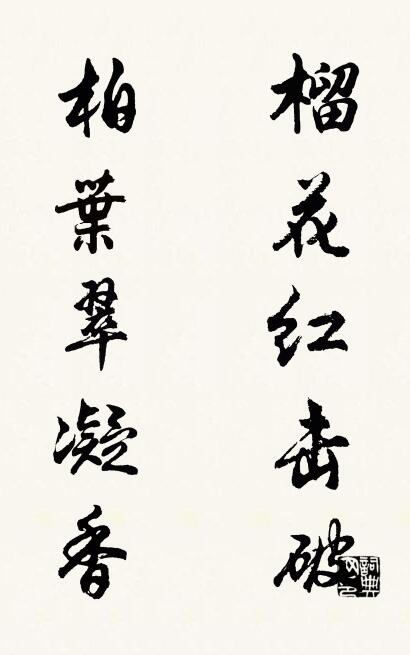 榴花红击破
柏葉翠凝香
詞典